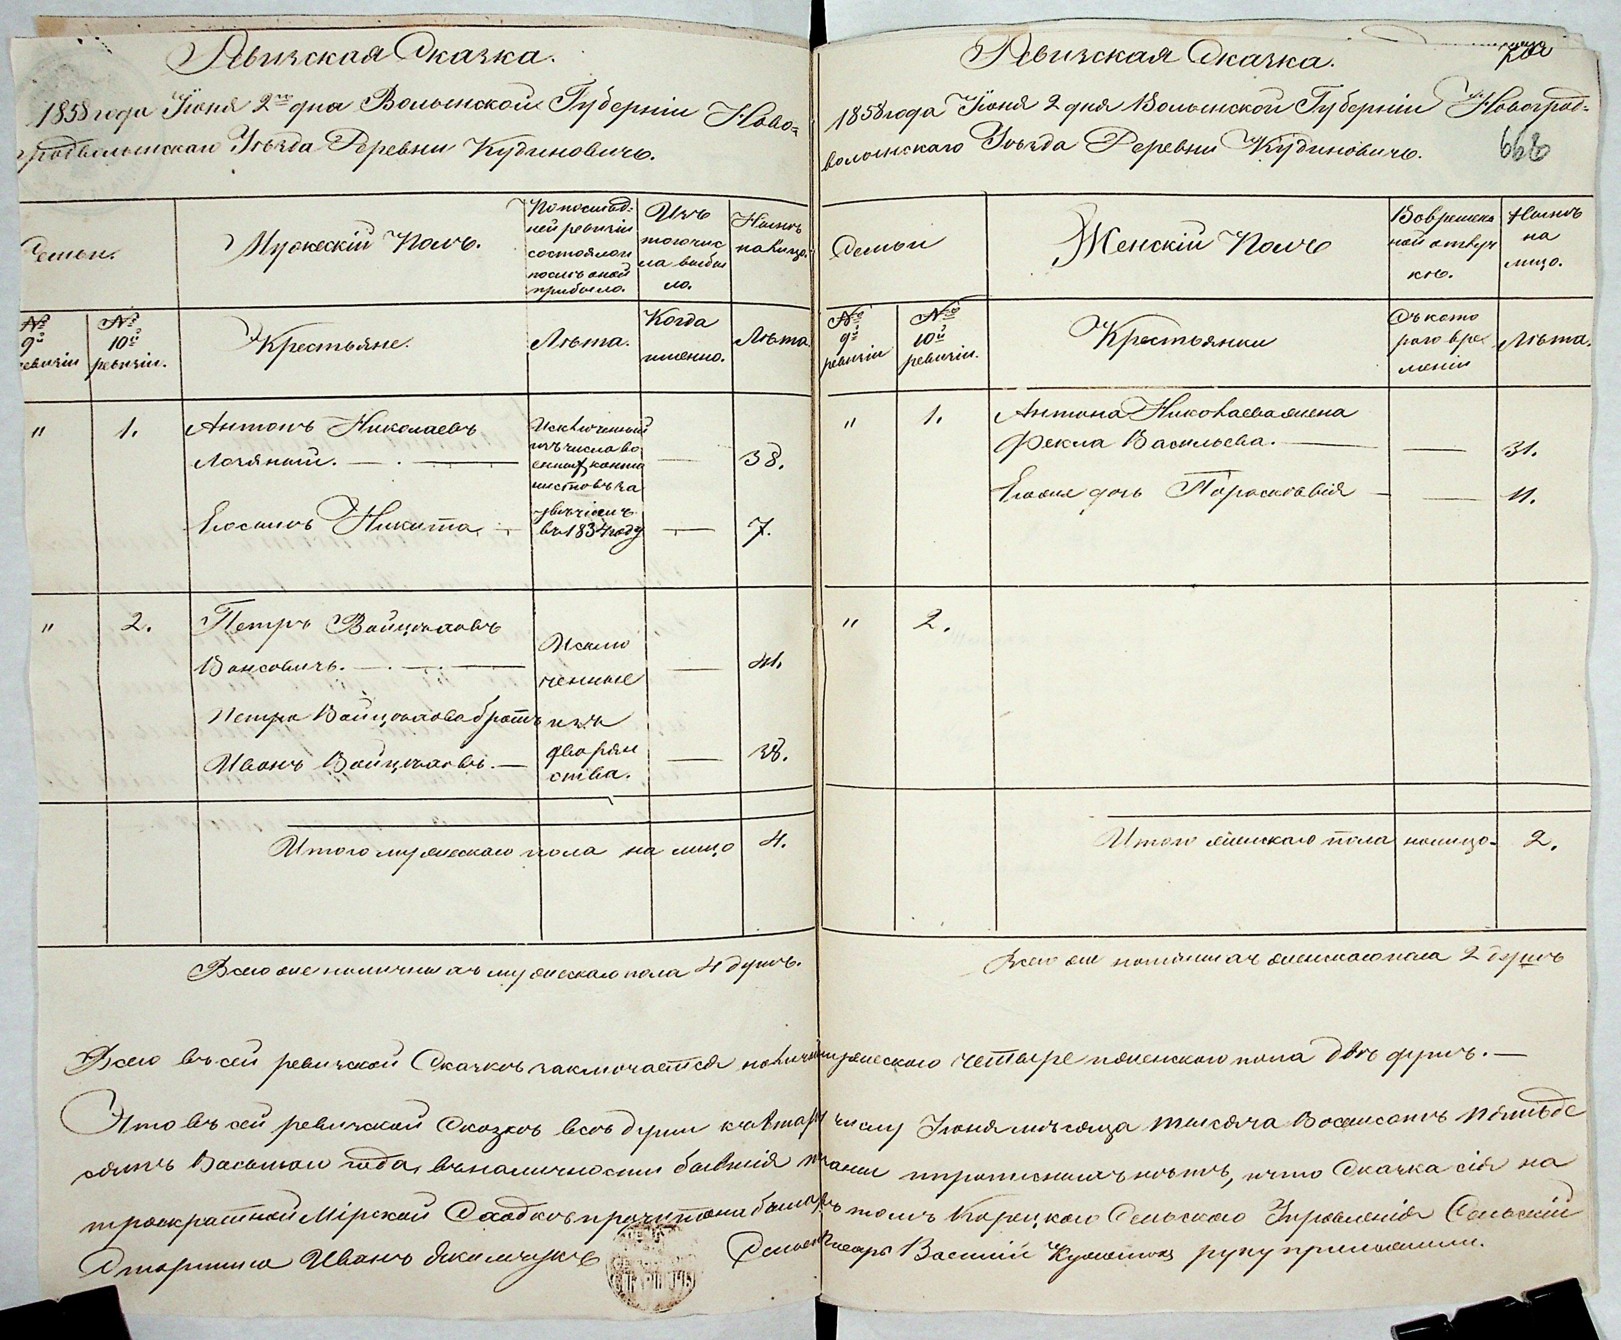 Ревизская Сказка.
1858 года Іюня 2го дня Волынской Губерніи Ново=
градволынскаго Уѣзда Деревни Кудиновичъ.
Семьи.
Мужескій Полъ.
По послѣд=
ней ревизіи
состояло и
послѣ оной
прибыло.
Изъ
того чис
ла выбы
ло.
Налич
на лицо.
№
9й
ревизіи
№
10й
ревизіи.
Крестьяне.
Лѣта.
Когда
именно.
Лѣта.
" 1. Антонъ Николаевъ
38.
Исключенный
изъ числа во
енныхъ канто
нистовъ за
въ 1834 году
Его сынъ Никита. 7.
" 2. Петръ Войцеховъ
41.
Исклю
ченные
изъ
дворян
ства.
Петра Войцехова братъ
Иванъ Войцеховъ. 38.
Итого мужескаго пола на лицо 4.
Всего же наличныхъ мужескаго пола 4 душъ.
Ревизская Сказка.
1858 года Іюня 2 дня Волынской Губерніи Новоград=
волынскаго Уѣзда Деревни Кудиновичъ.
668
Семьи
Женскій Полъ
Во времен
ной отлуч
кѣ.
Налич
на
лицо.
№
9й
ревизіи
№
10й
ревизіи.
Крестьянки
Съ кото
раго вре
мени
Лѣта.
" 1. Антона Николаева жена
Фекла Васильева. 31.
Его же дочь Парасковія 11.
" 2.
Итого женскаго пола налицо 2.
Всего же наличныхъ женскаго пола 2 душъ
Всего въ сей ревизской Сказкѣ заключается наличныхъ мужескаго четыре и женскаго пола двѣ душъ.
Что въ сей ревизской Сказкѣ всѣ души къ второму числу Іюня мѣсяца тысяча Восемсотъ пятьде
сятъ Восьмаго года, въ наличности бывшія показаны и прописныхъ нѣтъ, и что Сказка сія на
троекратной Мірской Сходкѣ прочитана была, въ томъ Корецкаго Сельскаго Управленія Сельскій
Старшина Иванъ Сельскій Писарь Василій руку приложили.